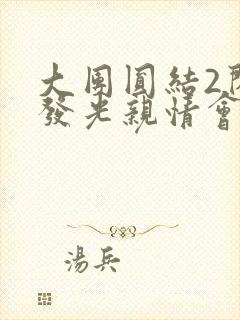 大團圓結2閃
發光親情會
湯兵